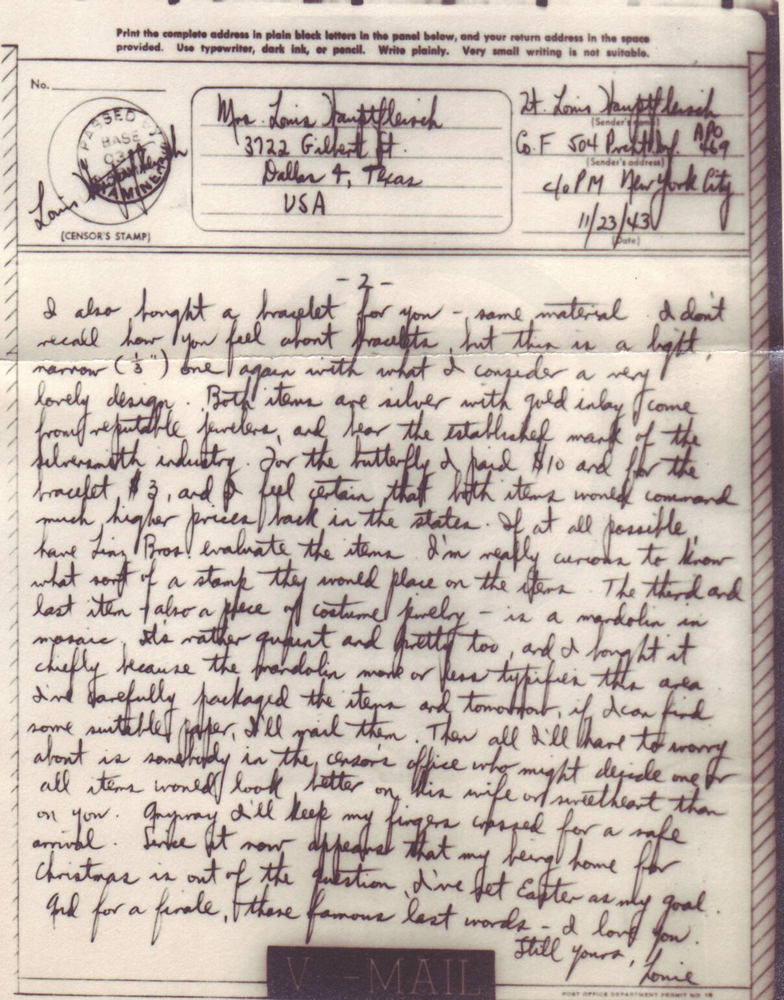 Print the complete address in plain block letters in the panel below, and your return address in the space
provided. Use typewriter, dark ink, or pencil. Write plainly. Very small writing is not suitable.
No.
PASSED BY
BASE
EXAMINER
Louis Hauptfleisch
(CENSOR'S STAMP)
Mrs. Louis Hauptfleisch
3722 Gilbert St.
Dallas 4, Texas
USA
Lt. Louis Hauptfleisch
(Sender's name)
Co. F 504 Prcht Inf. APO 469
(Sender's address)
c/o PM New York City
11/23/43
(Date)
- 2 -
I also bought a bracelet for you - same material. I don't
recall how you feel about bracelets, but this is a light,
narrow (⅓") one again with what I consider a very
lovely design. Both items are silver with gold inlay, come
from reputable jewelers, and bear the established mark of the
silversmith industry. For the butterfly I paid $10 and for the
bracelet $3, and I feel certain that both items would command
much higher prices back in the states. If at all possible,
have Linz Bros. evaluate the items. I'm really curious to know
what sort of a stamp they would place on the items. The third and
last item - also a piece of costume jewelry - is a mandolin in
mosaic. It's rather quaint and pretty too, and I bought it
chiefly because the mandolin more or less typifies this area.
I've carefully packaged the items and tomorrow, if I can find
some suitable paper, I'll mail them. Then all I'll have to worry
about is somebody in the censor's office who might decide one or
all items would look better on his wife or sweetheart than
on you. Anyway I'll keep my fingers crossed for a safe
arrival. Since it now appears that my being home for
Christmas is out of the question, I've set Easter as my goal.
And for a finale, these famous last words - I love you.
Still yours, Louie
V - MAIL
POST OFFICE DEPARTMENT PERMIT NO. 15